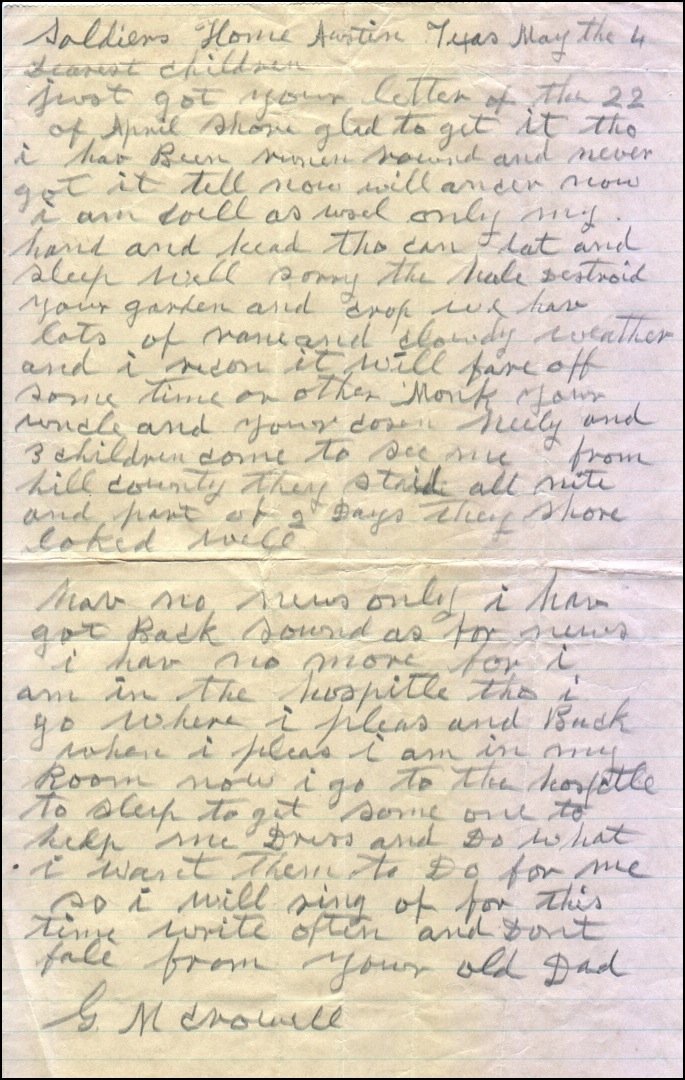 Soldiers Home Austin Texas May the 4
Dearest children
just got your letter of the 22
of April shore glad to get it tho
i hav Been runen round and never
got it tell now will anser now
i am well as usel only my
hand and head tho can eat and
sleep well sorry the hale Destroid
your garden and crop we hav
lots of rane and clowdy weather
and i recon it will fare off
some time or other Monk your
uncle and your cosen Neely and
3 children come to see me from
hill county they staid all nite
and part of 2 Days they shore
loked well
hav no news only i hav
got Back sound as for news
i hav no more for i
am in the hospitle tho i
go where i pleas and Back
when i pleas i am in my
Room now i go to the hospitle
to sleep to get some one to
help me Dress and Do what
i want them to Do for me
so i will sing of for this
time write often and Dont
fale from your old Dad
G M Crowell